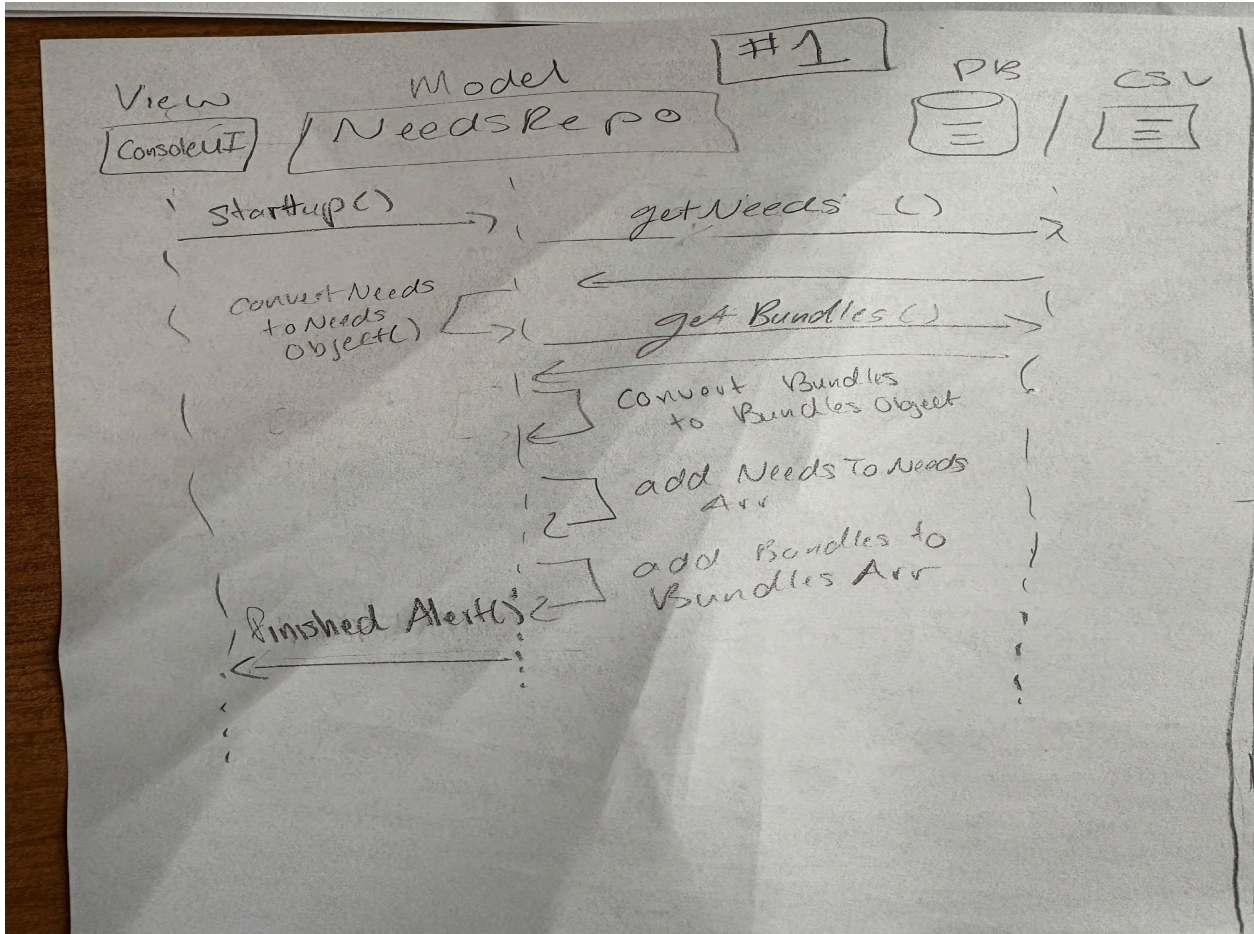 #1
View
Model
DB
CSV
ConsoleUI
NeedsRepo
/
startup()
getNeeds ()
convertNeeds
to Needs
Object()
get Bundles()
convert Bundles
to Bundles Object
add Needs To Needs
Arr
add Bundles to
Bundles Arr
finished Alert()